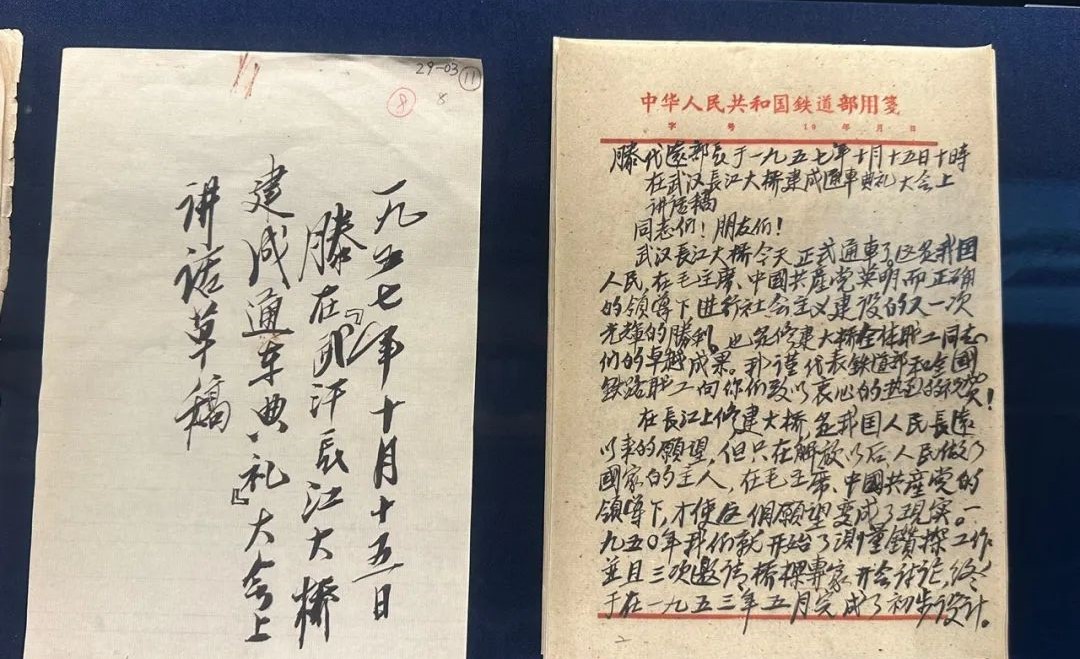 29-03 ⑪
⑧ 8
一九五七年十月十五日
滕在『武汉长江大桥
建成通车典礼』大会上
讲话草稿
中华人民共和国鉄道部用箋
字 号 19 年 月 日
滕代遠部長于一九五七年十月十五日十時
在武汉長江大桥建成通車典礼大会上
讲话稿
同志们！朋友们！
武汉長江大桥今天正式通車了。这是我国
人民，在毛主席、中國共産党英明而正确
的領导下進行社会主义建设的又一次
光輝的勝利。也是修建大橋全体职工同志
们的卓越成果。我謹代表鉄道部和全國
鉄路职工向你们致以衷心的热烈的祝贺！
在長江上修建大桥是我国人民長遠
以来的願望，但只在解放以后，人民做了
國家的主人，在毛主席、中國共産党的
領导下，才使这個願望变成了現实。一
九五〇年我们就开始了測量鑽探工作
並且三次邀请桥樑專家开会讨论，终
于在一九五三年五月完成了初步设计。